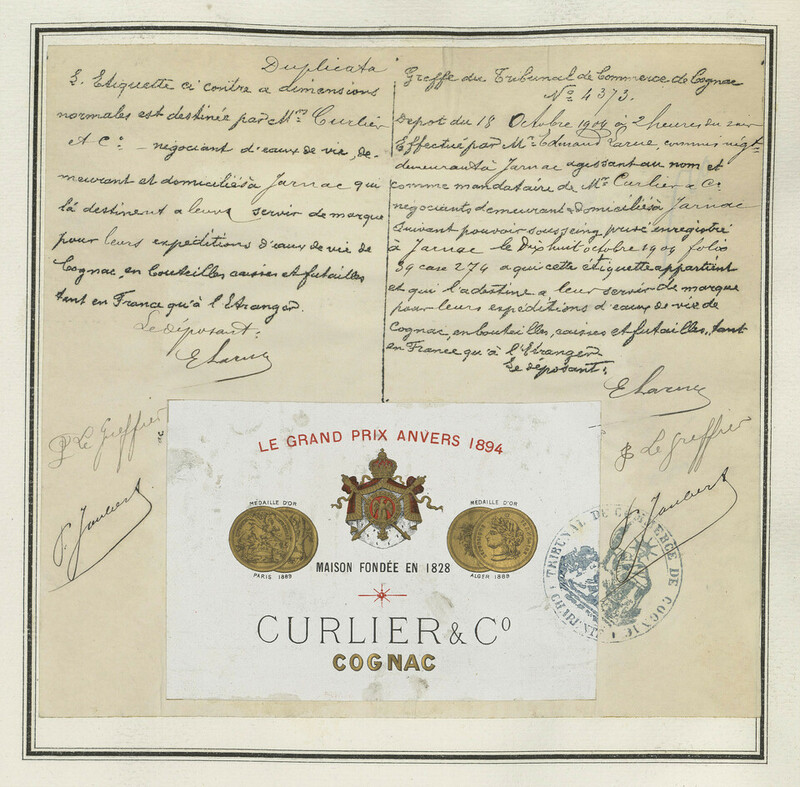 Duplicata
L. Etiquette ci contre a dimensions
normales est destinée par Mrs Curlier
& Co - négociant d'eaux de vie, de-
meurant et domiciliés à Jarnac qui
la destinent a leurs servir de marque
pour leurs expéditions d'eaux de vie de
Cognac, en bouteilles caisses et futailles
tant en France qu'à l'Etranger.
Le déposant:
E Larue
P Le Greffier
Greffe du Tribunal de Commerce de Cognac
No 4373.
Depot du 18 Octobre 1904 à 2 heures du soir
Effectué par Mr Edmund Larue, commis négt
demeurant à Jarnac agissant au nom et
comme mandataire de Mrs Curlier & Co
négociants demeurant & domiciliés à Jarnac
suivant pouvoir sous seing privé enregistré
à Jarnac le Dix huit octobre 1904 folio
39 case 274 a qui cette étiquette appartient
et qui l'a destine a leur servir de marque
pour leurs expéditions d'eaux de vie de
Cognac, en bouteilles, caisses et futailles, tant
en France qu'à l'Etranger
Le déposant:
E Larue
P Le Greffier
LE GRAND PRIX ANVERS 1894
MEDAILLE D'OR
PARIS 1889
MEDAILLE D'OR
ALGER 1889
MAISON FONDÉE EN 1828
CURLIER & Co
COGNAC
TRIBUNAL DE COMMERCE DE COGNAC